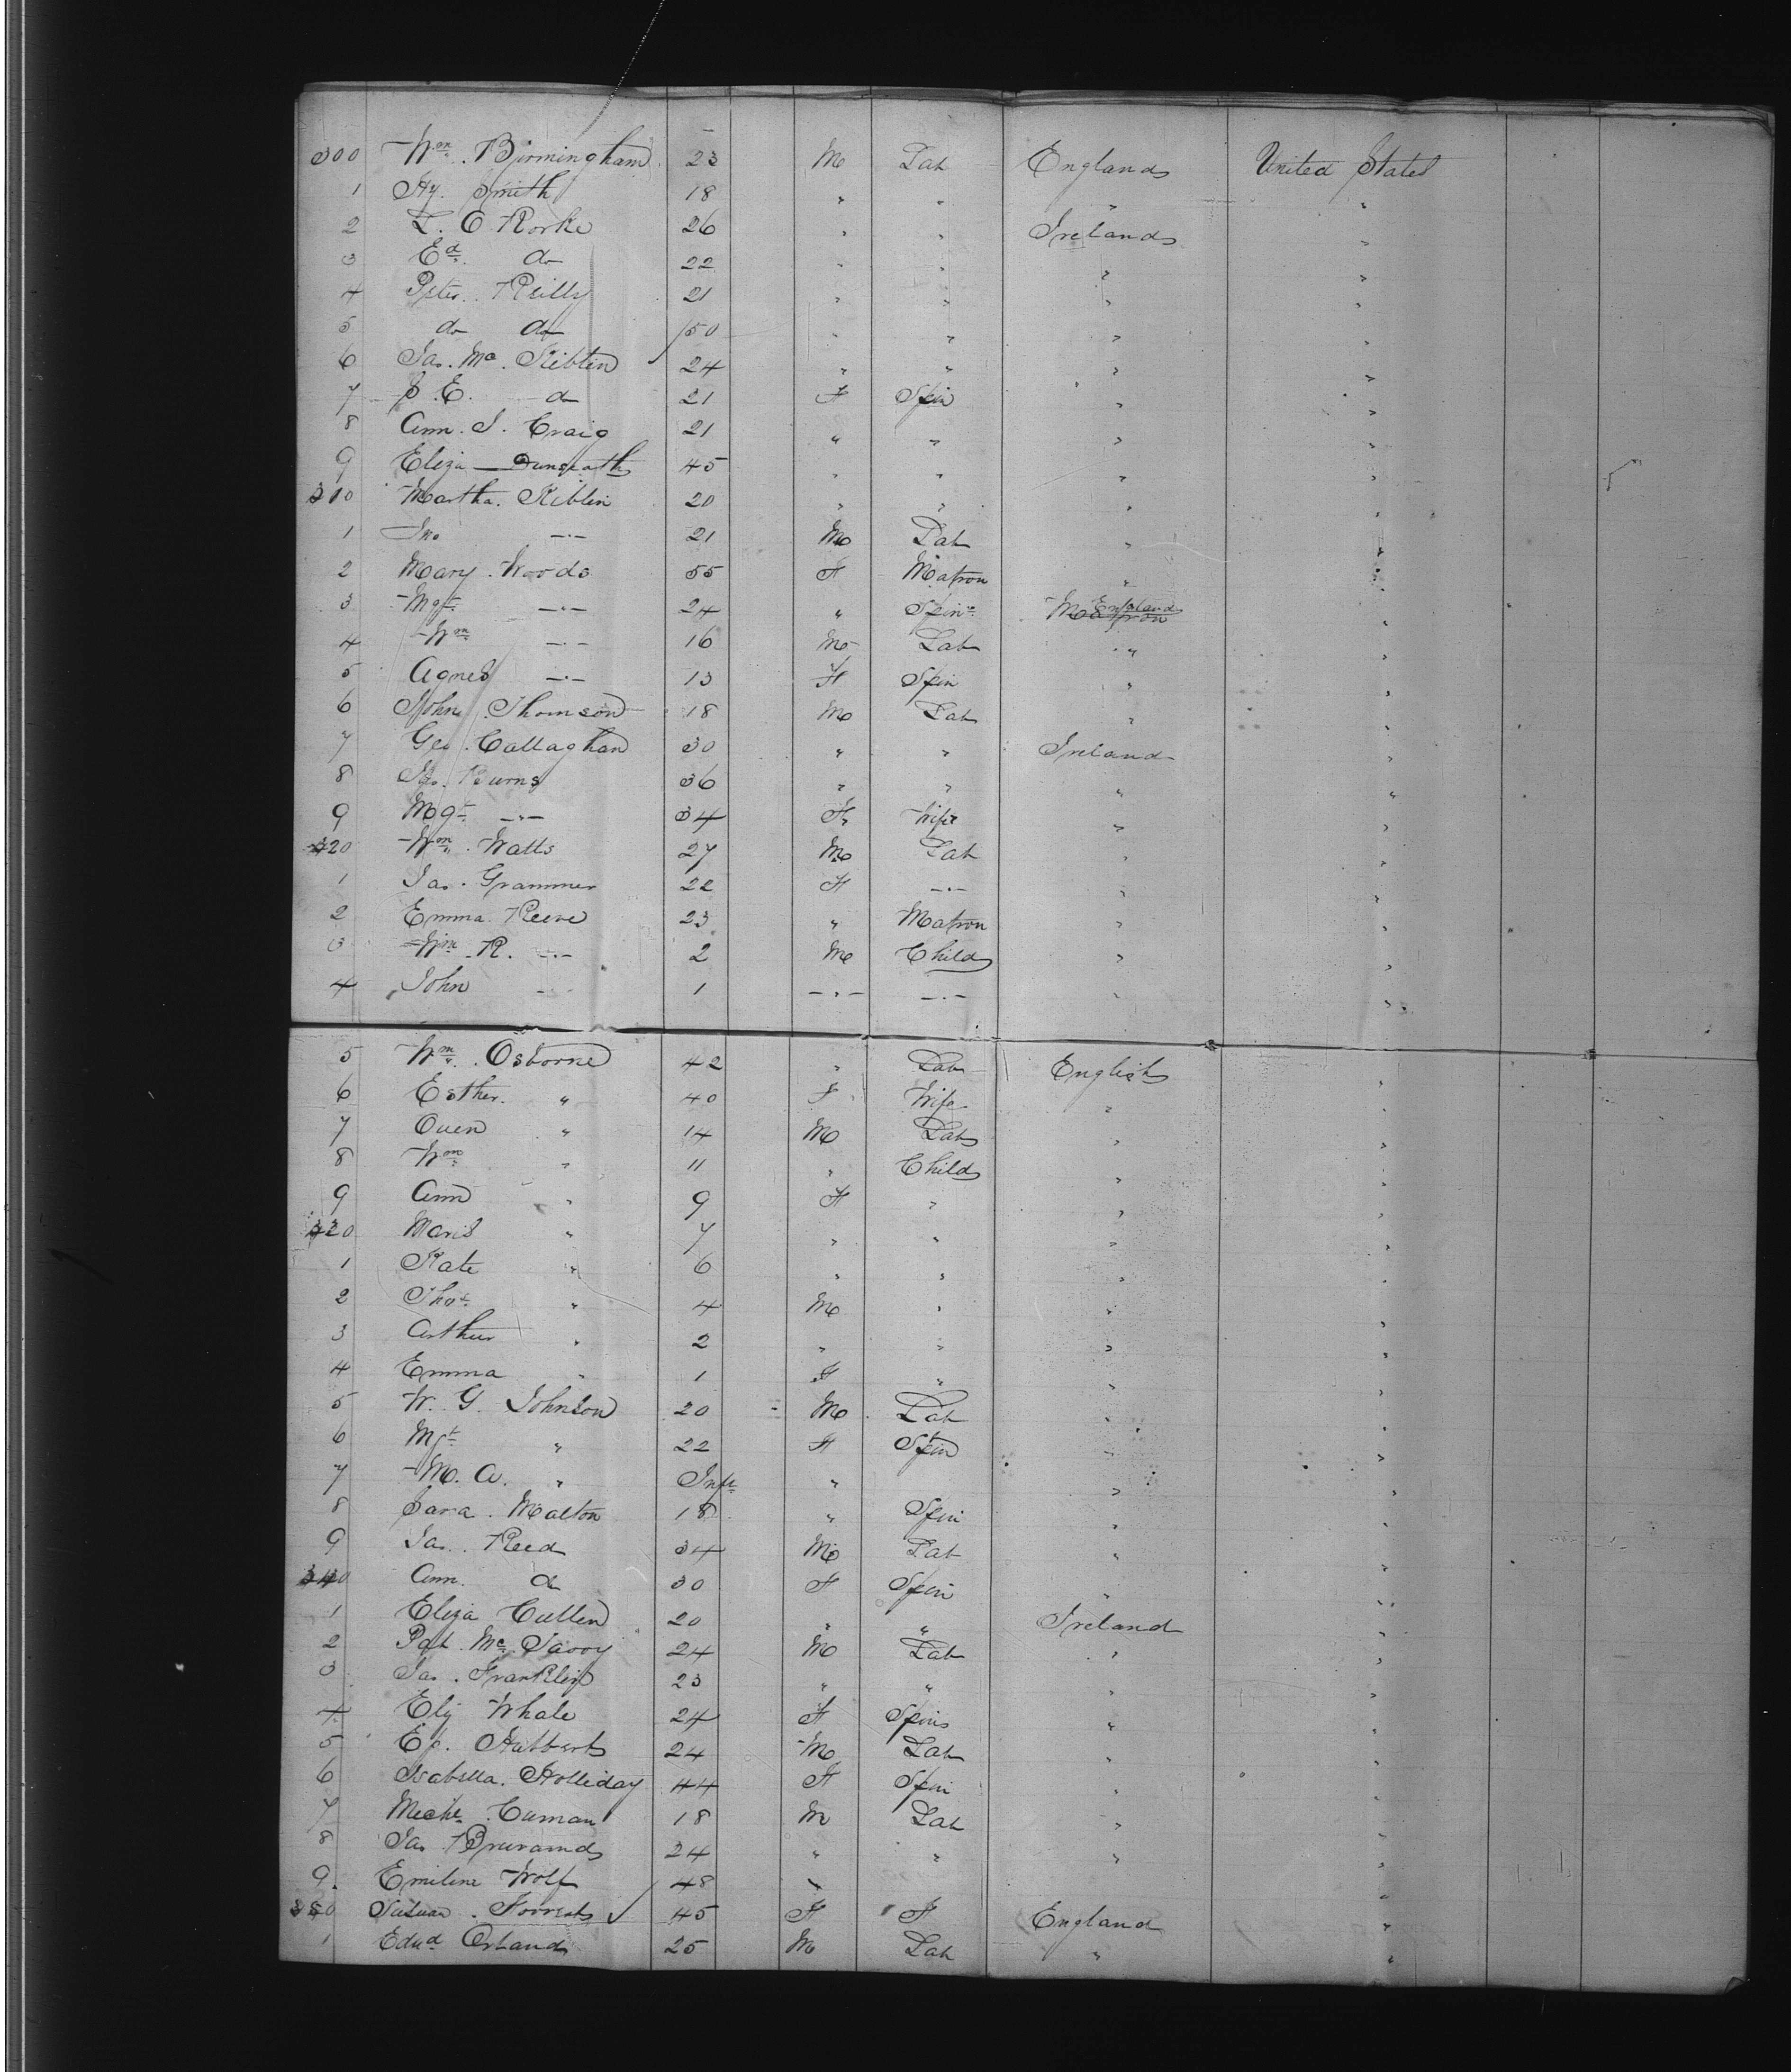 300 Wm. Birmingham 23 M Lab England United States
1 Hy. Smith 18 " " " "
2 L. O Rorke 26 " " Ireland "
3 Ed. do 22 " " " "
4 Peter. Reilly 21 " " " "
5 do do 50 " " " "
6 Jas. Mc. Kiblin 24 " " " "
7 S. E. do 21 F Spin " "
8 Ann. J. Craig 21 " " " "
9 Eliza 45 " " " "
310 Martha. Kiblin 20 " " " "
1 Jno —·— 21 M Lab " "
2 Mary. Woods 55 F Matron " "
3 Mgt. —·— 24 " Spinr. England "
4 Wm —·— 16 M Lab " "
5 Agnes —·— 13 F Spin " "
6 John Thomson 18 M Lab " "
7 Geo. Callaghan 30 " " Ireland "
8 Burns 36 " " " "
9 Mgt. —·— 34 F Wife " "
320 Wm. Watts 27 M Lab " "
1 Jas. Grammer 22 F —·— " "
2 Emma. Reeve 23 " Matron " "
3 Wm. R. —·— 2 M Child " "
4 John —·— 1 —·— —·— " "
5 Wm. Osborne 42 " Lab English "
6 Esther. " 40 F Wife " "
7 Owen " 14 M Lab " "
8 Wm " 11 " Child " "
9 Ann " 9 F " " "
330 " 7 " " " "
1 Kate " 6 " " " "
2 Thos. " 4 M " " "
3 Arthur " 2 " " " "
4 Emma " 1 F " " "
5 W. G. Johnson 20 M Lab " "
6 Mgt. " 22 F Spin " "
7 M. A. " Inft " " "
8 Sara. Malton 18 " Spin " "
9 Jas. Reed 34 M Lab " "
340 Ann. do 30 F Spin " "
1 Eliza Cullen 20 " " Ireland "
2 Pat. Mc. Savoy 24 M Lab " "
3 Jas. Franklin 23 " " " "
4 Eliz Whale 24 F Spin " "
5 Hubbert 24 M Lab " "
6 Isabella. Holliday 44 F Spin " "
7 18 M Lab " "
8 Jas 24 " " " "
9. Emiline Wolf 48 " "
350 45 F F England "
1 Edwd 25 M Lab " "